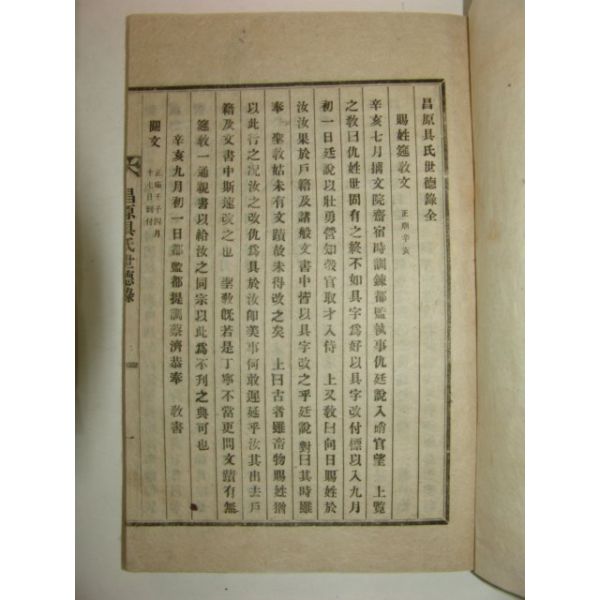 昌原具氏世德錄全
賜姓筵敎文 正廟辛亥
辛亥七月摛文院齋宿時訓鍊都監執事仇廷說入啃官望 上覧
之敎曰仇姓世固有之終不如具字爲好以具字改付標以入九月
初一日廷說以壯勇營知彀官取才入侍 上又敎曰向日賜姓於
汝汝果於戶籍及諸般文書中皆以具字改之乎廷說對曰其時雖
奉 聖敎姑未有文蹟故未得改之矣 上曰古者雖畜物賜姓猶
以此行之况汝之改仇爲具於汝卽美事何敢遲延乎汝其出去戶
籍及文書中斯速改之也 聖敎旣若是丁寧不當更問文蹟有無
筵敎一通親書以給汝之同宗以此爲不刊之典可也
辛亥九月初一日都監都提調蔡濟恭奉 敎書
關文 正廟壬子四月十七日到付
昌原具氏世德錄 一